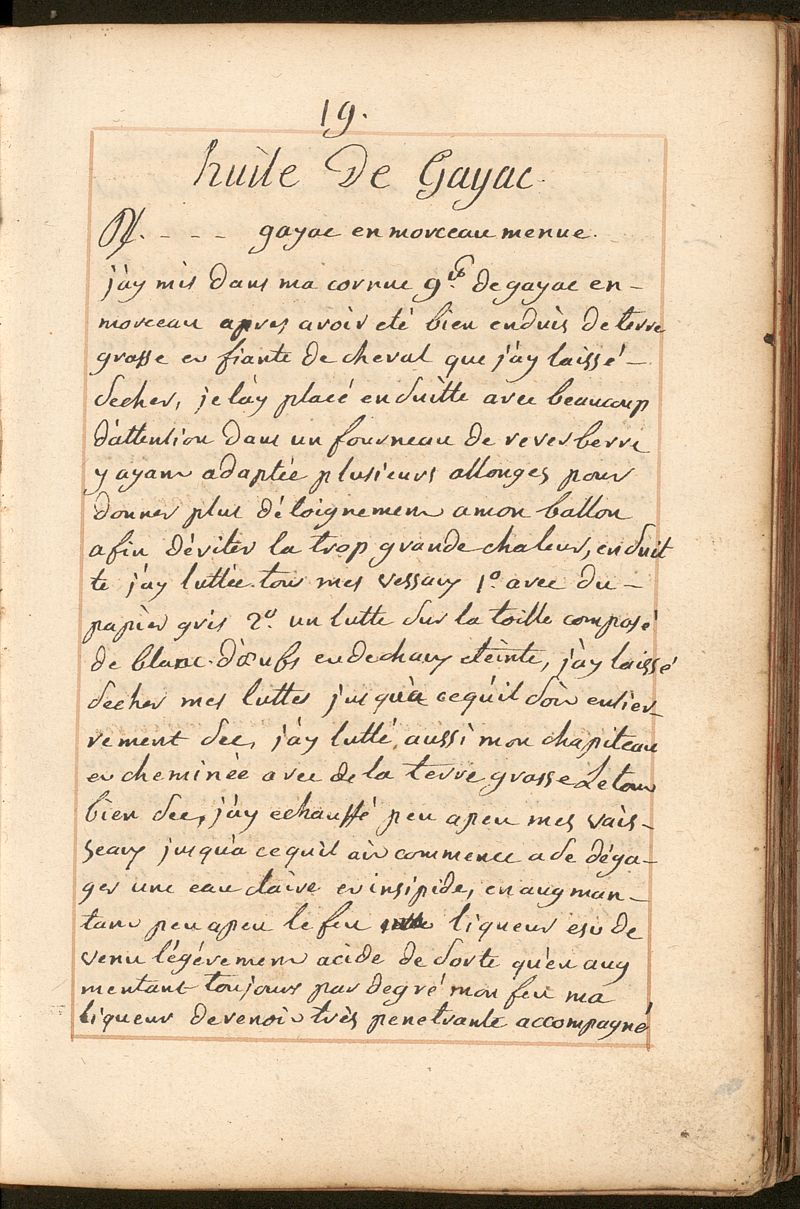 19.
huile De Gayac.
℞. - - - - gayac en morceau menue.
j'ay mis Dans ma cornue 9 ℔. de gayac en-
morceau apres avoir eté bien enduis de terre
grasse et fiante de cheval que j'ay laissé-
secher, je l'ay placé ensuitte avec beaucoup
d'attention Dans un fourneau de reverberre
y ayant adaptée plusieurs allonges pour
donner plus d'éloignement a mon ballon
afin d'éviter la trop grande chaleur, ensuit
te j'ay luttée tous mes vessaux 1.º avec du-
papier gris 2.º un lutte sur la toille composé
de blanc d'œufs et de chaux eteinte, j'ay laissé
secher mes luttes jusqu'a cequ'il soit entier-
rement sec, j'ay lutté aussi mon chapiteau
et cheminée avec de la terre grasse Le tout
bien sec, j'ay echauffé peu apeu mes vais-
seaux jusqu'a cequ'il ait commencé a se déga-
ger une eau claire et insipide, en augman-
tant peu apeu le feu liqueur est de
venu légérement acide de sorte qu'en aug
mentant toujours par degré mon feu ma
liqueur devenoit très penetrante accompagné